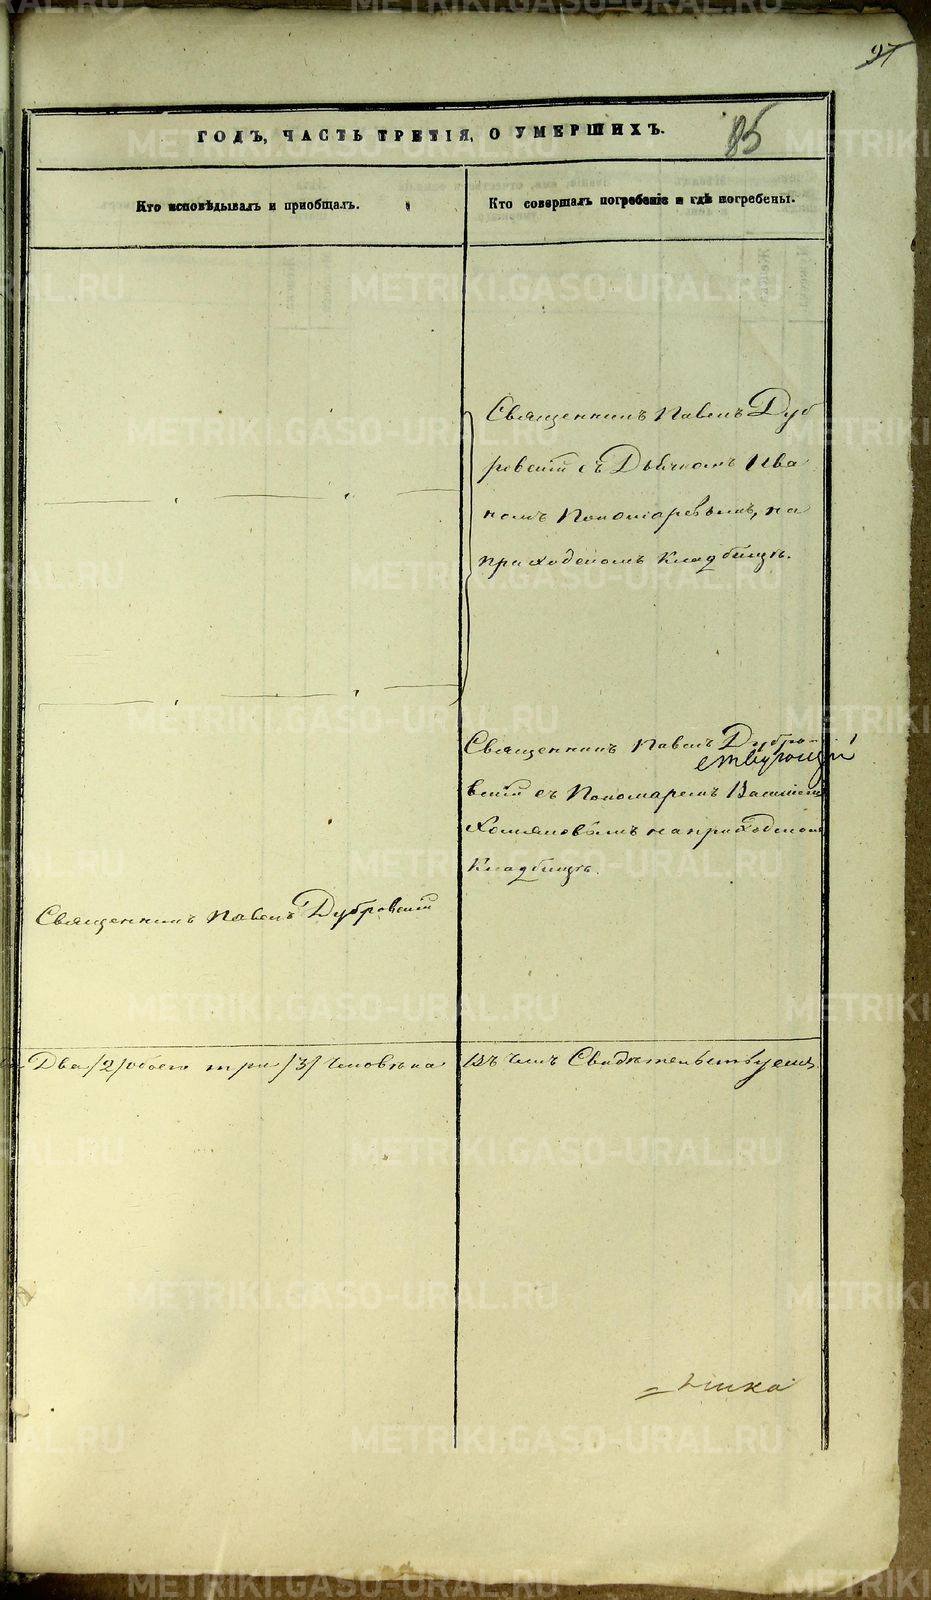 97
ГОДЪ, ЧАСТЬ ТРЕТІЯ, О УМЕРШИХЪ.
85
Кто исповѣдывалъ и приобщалъ.
Кто совершалъ погребеніе и гдѣ погребены.
Священникъ Павелъ Дуб
ровскій съ Дьячкомъ Ива
номъ Пономаревымъ, на
приходскомъ кладбищѣ.
Священникъ Павелъ Дубро
ствующій
вскій съ Пономаремъ Василіемъ
Хомяковымъ на приходскомъ
Кладбищѣ.
Священникъ Павелъ Дубровскій
Два /2/ обоего три /3/ человѣка
Въ чемъ Свидѣтельствуемъ.
METRIKI.GASO-URAL.RU